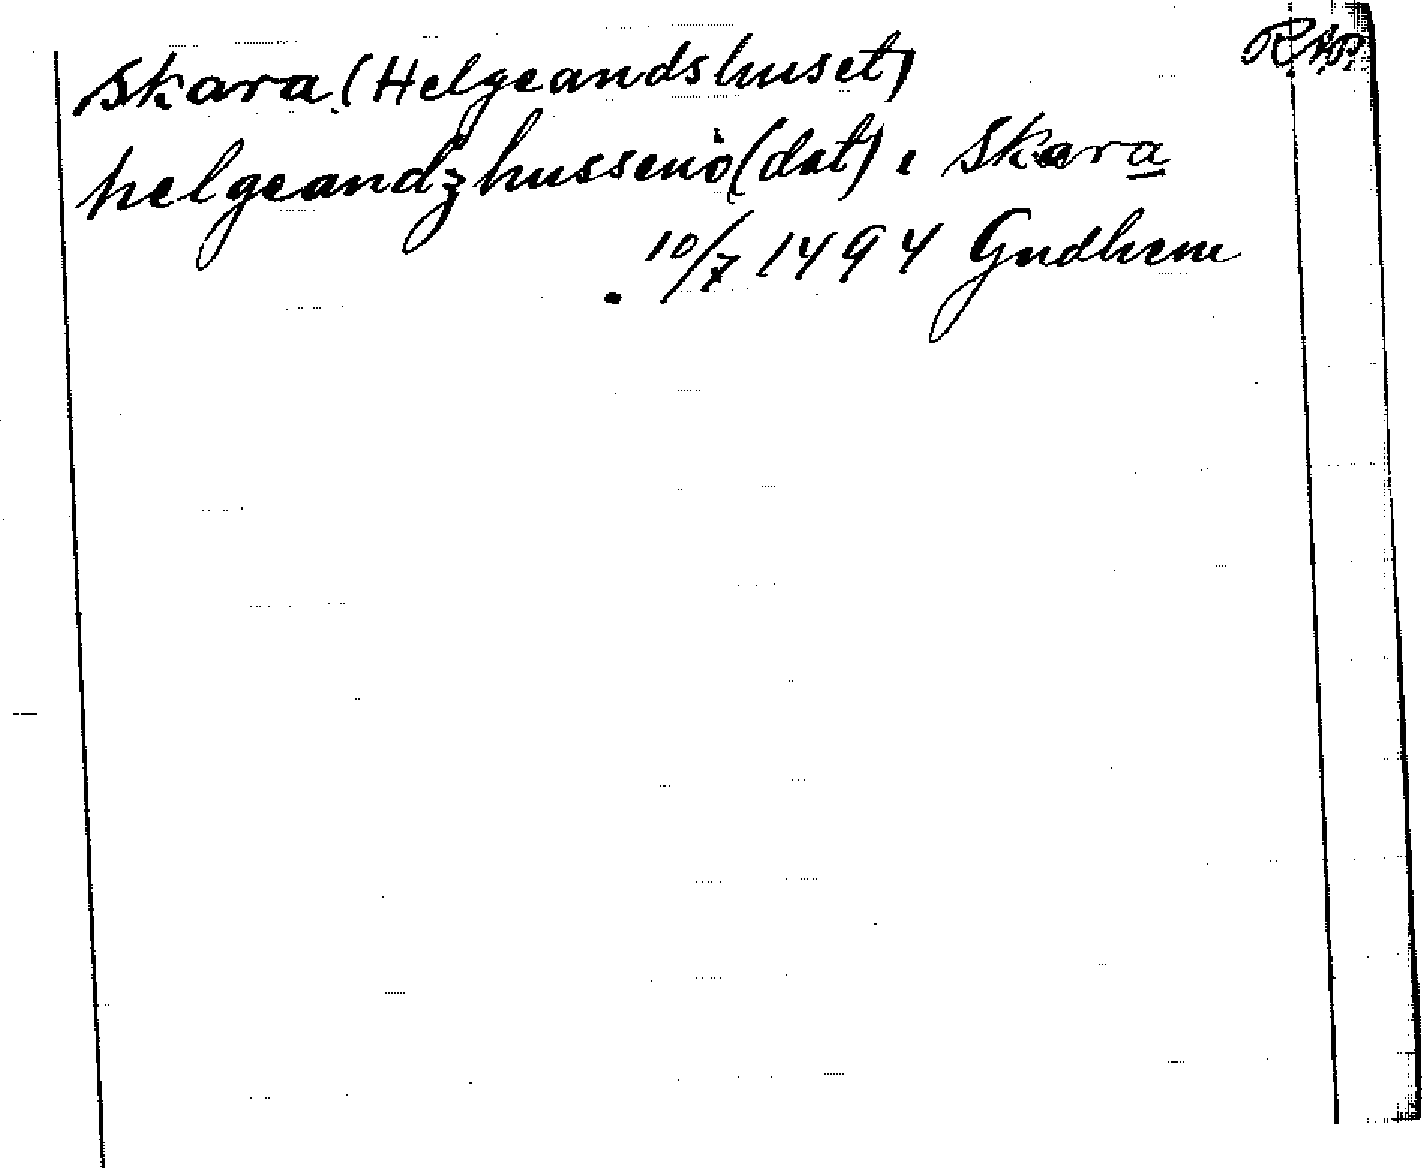 Skara (Helgeandshuset)
helgeandzhusseno (dat) i Skara
10/7 1494 Gudhem
RAP